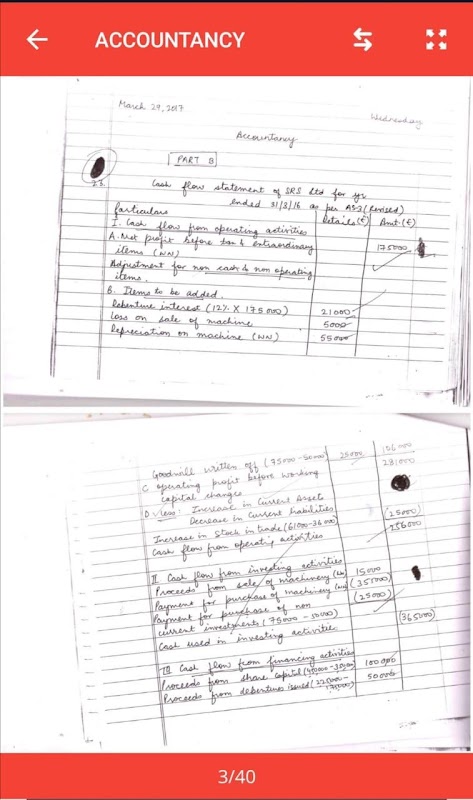 ACCOUNTANCY
March 29, 2017
Wednesday
Accountancy
PART B
23.
Cash flow statement of SRS Ltd for yr
ended 31/3/16 as per AS-3 (Revised)
Particulars Details (₹) Amt. (₹)
I. Cash flow from operating activities
A. Net profit before tax & extraordinary
items (WN) 175000
Adjustment for non cash & non operating
items.
B. Items to be added.
Debenture interest (12% X 175000) 21000
Loss on sale of machine 5000
Depreciation on machine (WN) 55000
Goodwill written off (75000-50000) 25000 106000
C operating profit before working 281000
capital changes
D Less: Increase in Current Assets
Decrease in Current liabilities
Increase in Stock in trade (61000-36000) (25000)
Cash flow from operating activities 256000
II Cash flow from investing activities
Proceeds from sale of machinery 15000
Payment for purchase of machinery (355000)
Payment for purchase of non (25000)
current investments (75000 - 50000)
Cash used in investing activities (365000)
III Cash flow from financing activities
Proceeds from share capital 100000
Proceeds from debentures issued (225000- 50000
175000)
3/40